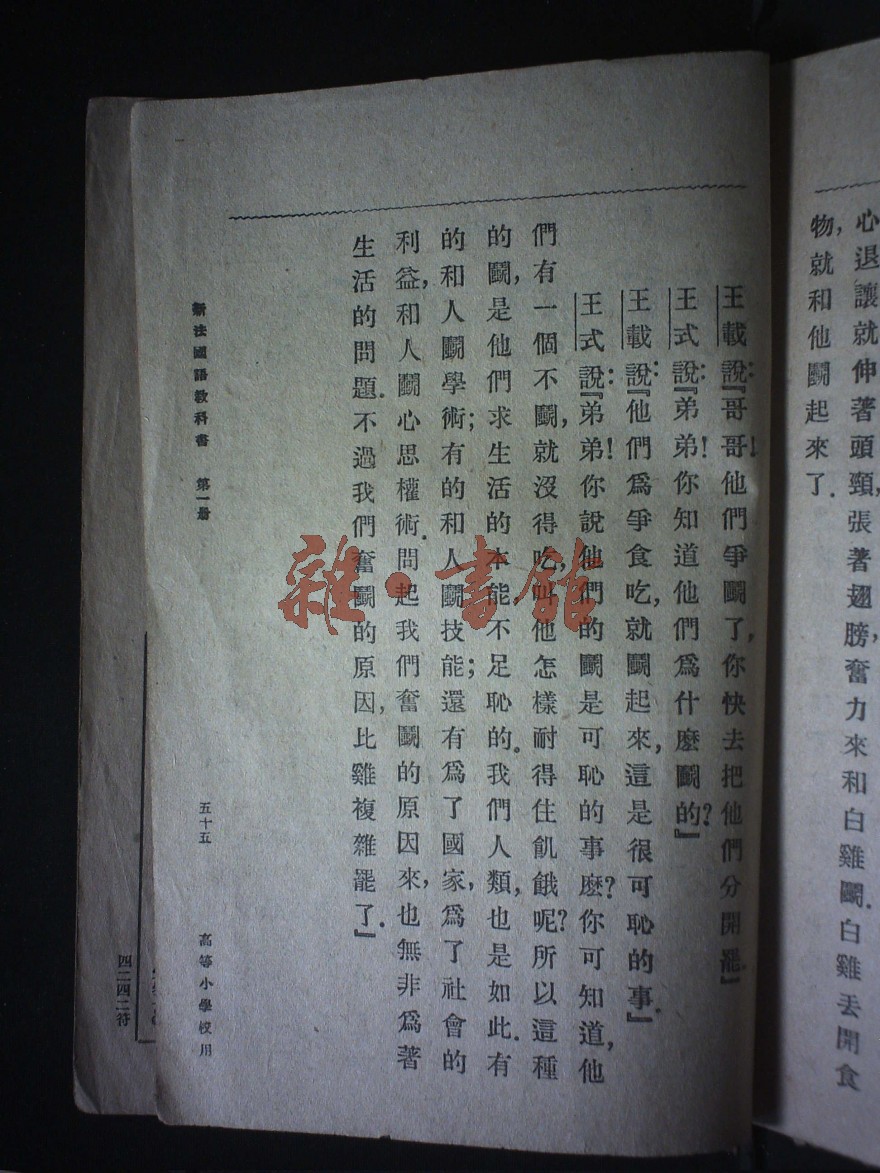 心退讓就伸著頭頸,張著翅膀,奮力來和白雞鬭.白雞丢開食
物,就和他鬭起來了.
王載說:『哥哥!他們爭鬭了,你快去把他們分開罷.』
王式說:『弟弟!你知道他們爲什麽鬭的?』
王載說:『他們爲爭食吃,就鬭起來,這是很可恥的事.』
王式說:『弟弟!你說他們的鬭是可恥的事麽?你可知道,他
們有一個不鬭,就沒得吃,叫他怎樣耐得住飢餓呢?所以這種
的鬭,是他們求生活的本能,不足恥的.我們人類,也是如此.有
的和人鬭學術;有的和人鬭技能;還有爲了國家,爲了社會的
利益,和人鬭心思權術.問起我們奮鬭的原因來,也無非爲著
生活的問題.不過我們奮鬭的原因,比雞複雜罷了.』
新法國語教科書 第一册 五十五 高等小學校用
四二四二符
雜·書館